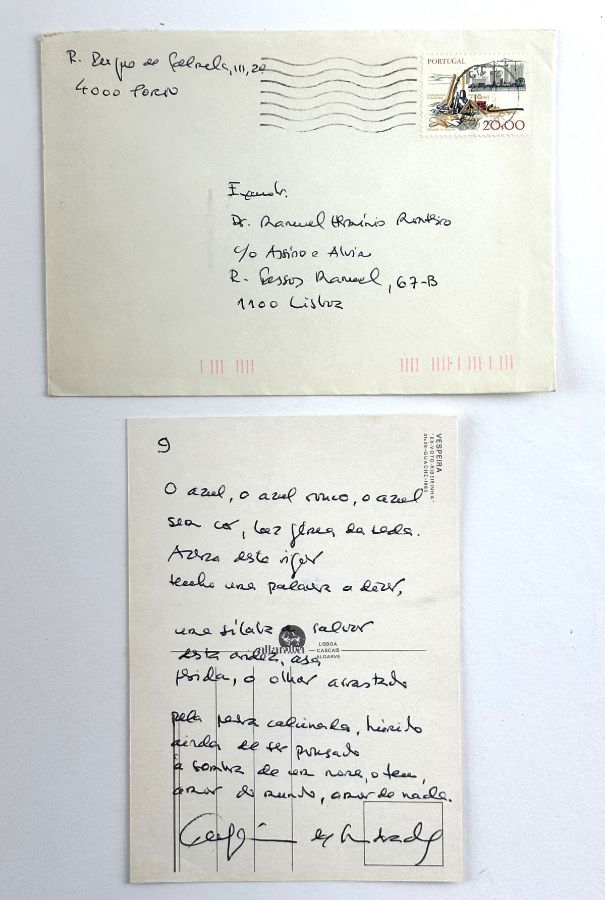 R. Duque de Saldanha, 111, 2º
4000 PORTO
PORTUGAL
20.00
Exmo Sr.
Dr. Manuel Hermínio Monteiro
c/o Assírio e Alvim
R. Passos Manuel, 67-B
1100 Lisboa
VESPEIRA
"EX-VOTO-RIBEIRINHA"
GUACHE-1985
9
O azul, o azul rouco, o azul
sem cor, luz gémea da sede.
Acerca deste rigor
tenho uma palavra a dizer,
uma sílaba a salvar
desta aridez, asa
ferida, o olhar arrastado
pela pedra calcinada, húmido
ainda de ter pousado
à sombra de um nome, o teu,
amor do mundo, amor de nada.
LISBOA
CASCAIS
ALGARVE
Eugénio de Andrade